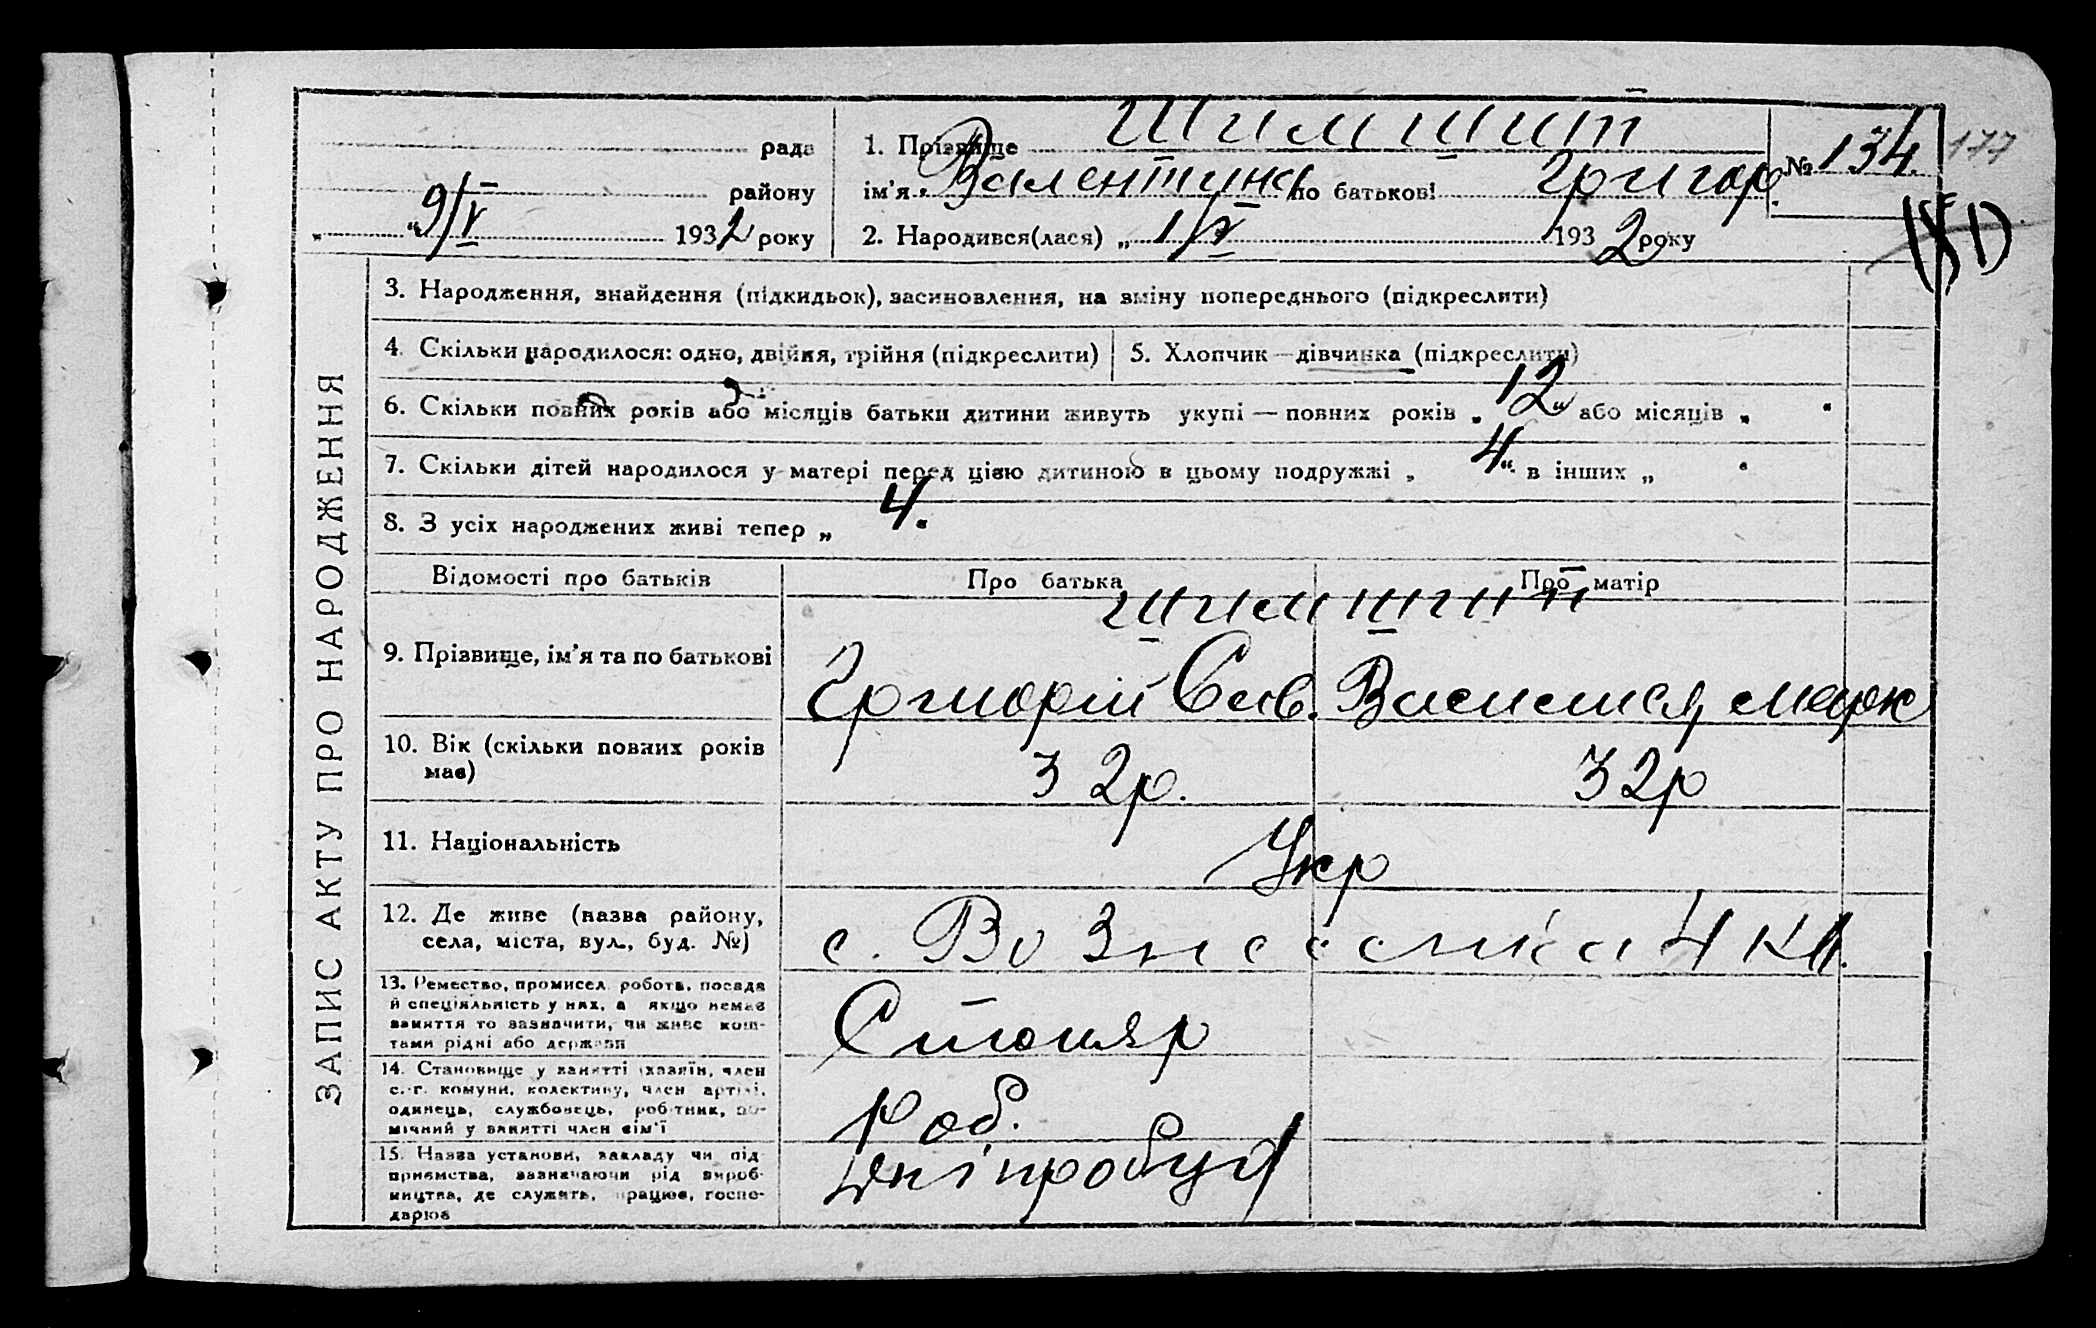 рада
району
„ “ 9/V 1932 року
1. Прізвище Шимшит
ім’я Валентина по батькові Григор.
2. Народився(лася) „ 1/V 1932 року
№ 134.
177
ЗАПИС АКТУ ПРО НАРОДЖЕННЯ
3. Народження, знайдення (підкидьок), засиновлення, на зміну попереднього (підкреслити)
4. Скільки народилося: одно, двійня, трійня (підкреслити)
5. Хлопчик — дівчинка (підкреслити)
6. Скільки повних років або місяців батьки дитини живуть укупі — повних років „ 12 “ або місяців „ “
7. Скільки дітей народилося у матері перед цією дитиною в цьому подружжі „ 4 “ в інших „ “
8. З усіх народжених живі тепер „ 4. “
Відомості про батьків
Про батька
Про матір
9. Прізвище, ім’я та по батькові
Григорій Сав.
Василиса Марк
10. Вік (скільки повних років
має)
32р.
32р
11. Національність
Укр
12. Де живе (назва району,
села, міста, вул., буд. №)
с. Вознесенка 4 кл.
13. Ремество, промисел, робота, посада
й спеціяльність у них, а якщо немає
заняття то зазначити, чи живе кош-
тами рідні або держави
Столяр
14. Становище у занятті (хазяїн, член
с.-г. комуни, колективу, член артілі,
одинець, службовець, робітник, по-
мічний у занятті член сім’ї
Роб.
15. Назва установи, закладу чи під-
приємства, зазначаючи рід вироб-
ництва, де служить, працює, госпо-
дарює
Дніпробуд